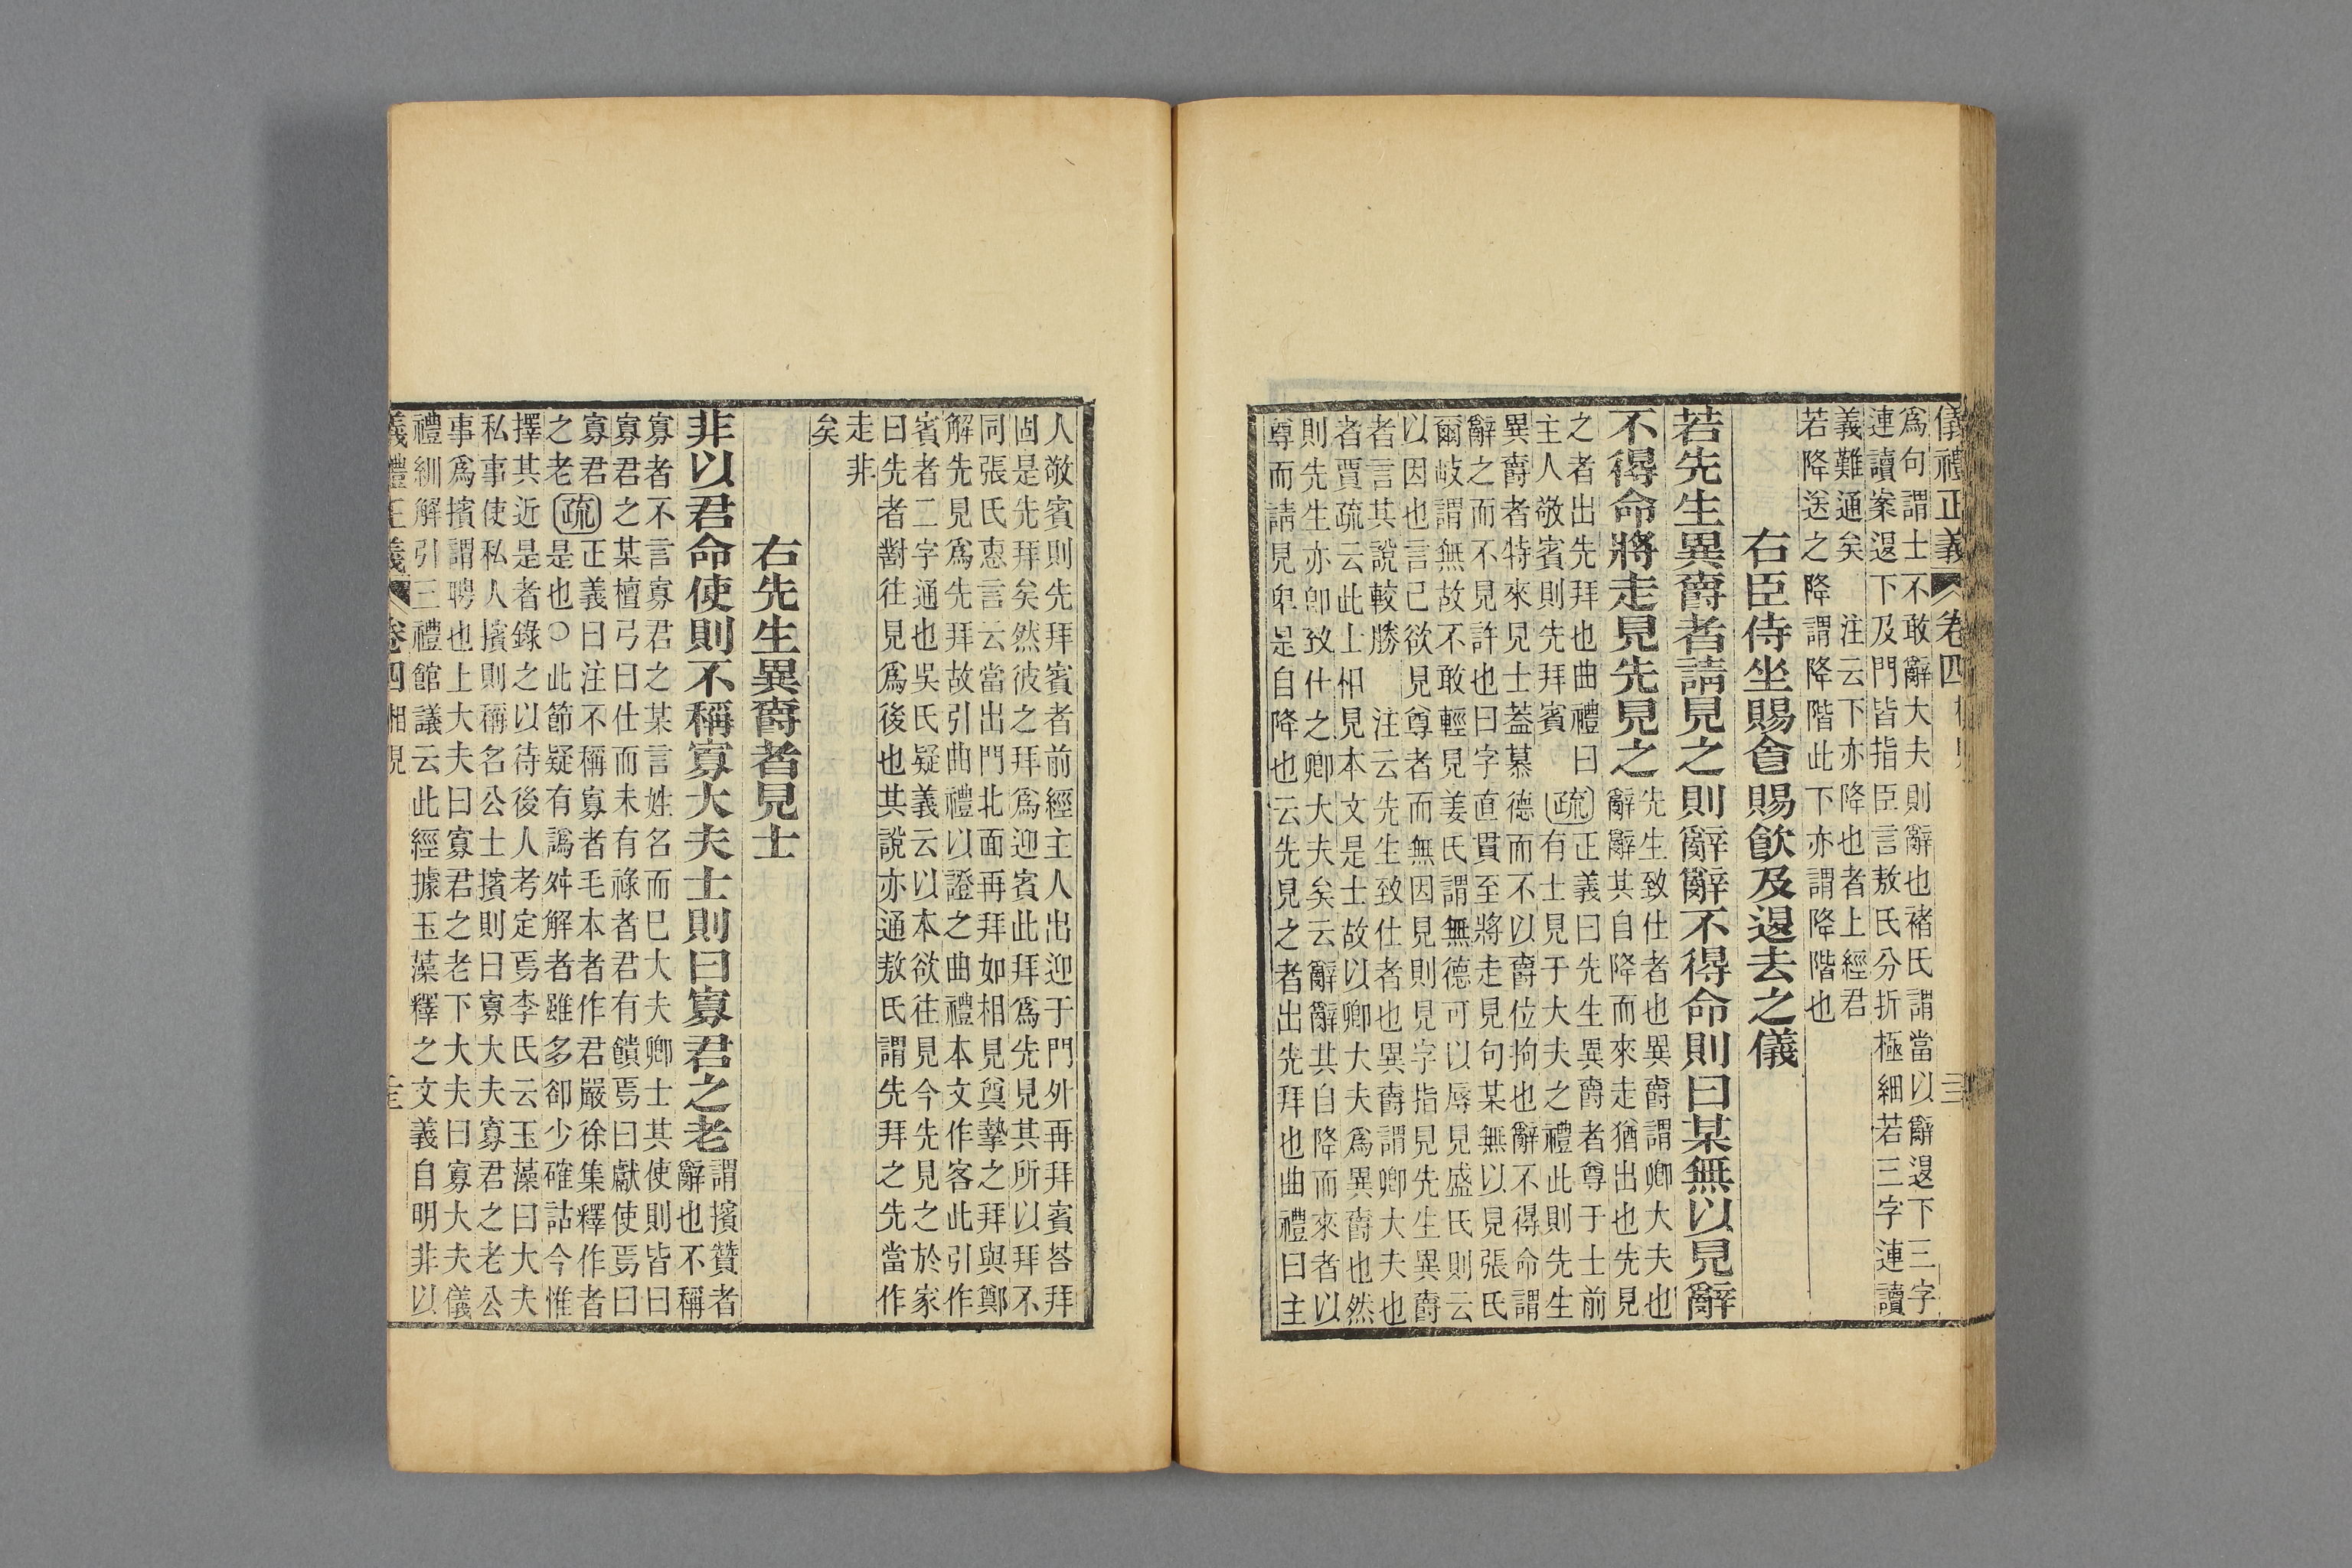 儀禮正義 卷四
爲句謂士不敢辭大夫則辭也褚氏謂當以辭退下三字
連讀案退下及門皆指臣言敖氏分折極細若三字連讀
義難通矣 注云下亦降也者上經君
若降送之降謂降階此下亦謂降階也
右臣侍坐賜食賜飲及退去之儀
若先生異爵者請見之則辭辭不得命則曰某無以見辭
不得命將走見先見之
先生致仕者也異爵謂卿大夫也
辭辭其自降而來走猶出也先見
之者出先拜也曲禮曰
主人敬賓則先拜賓
疏
正義曰先生異爵者尊于士前
有士見于大夫之禮此則先生
異爵者特來見士蓋慕德而不以爵位拘也辭不得命謂
辭之而不見許也曰字直貫至將走見句某無以見張氏
爾岐謂無故不敢輕見姜氏謂無德可以辱見盛氏則云
以因也言已欲見尊者而無因見則見字指見先生異爵
者言其說較勝 注云先生致仕者也異爵謂卿大夫也
者賈疏云此士相見本文是士故以卿大夫爲異爵也然
則先生亦卽致仕之卿大夫矣云辭辭其自降而來者以
尊而請見卑是自降也云先見之者出先拜也曲禮曰主
人敬賓則先拜賓者前經主人出迎于門外再拜賓荅拜
固是先拜矣然彼之拜爲迎賓此拜爲先見其所以拜不
同張氏惠言云當出門北面再拜如相見奠摯之拜與鄭
解先見爲先拜故引曲禮以證之曲禮本文作客此引作
賓者二字通也吳氏疑義云以本欲往見今先見之於家
曰先者對往見爲後也其說亦通敖氏謂先拜之先當作
走非
矣
右先生異爵者見士
非以君命使則不稱寡大夫士則曰寡君之老
謂擯贊者
辭也不稱
寡者不言寡君之某言姓名而已大夫卿士其使則皆曰
寡君之某檀弓曰仕而未有祿者君有饋焉曰獻使焉曰
寡君
之老
疏
正義曰注不稱寡者毛本者作君嚴徐集釋作者
是也○此節疑有譌舛解者雖多卻少確詁今惟
擇其近是者錄之以待後人考定焉李氏云玉藻曰大夫
私事使私人擯則稱名公士擯則曰寡大夫寡君之老公
事爲擯謂聘也上大夫曰寡君之老下大夫曰寡大夫儀
禮紃解引三禮館議云此經據玉藻釋之文義自明非以
儀禮正義 卷四 相見